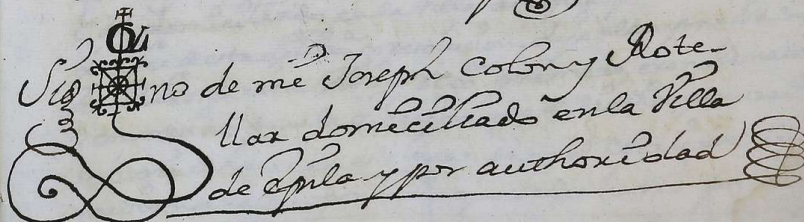 Sig no de mi Joseph Colon y Rote-
llar domiciliado en la Villa
de Epila y por authoridad